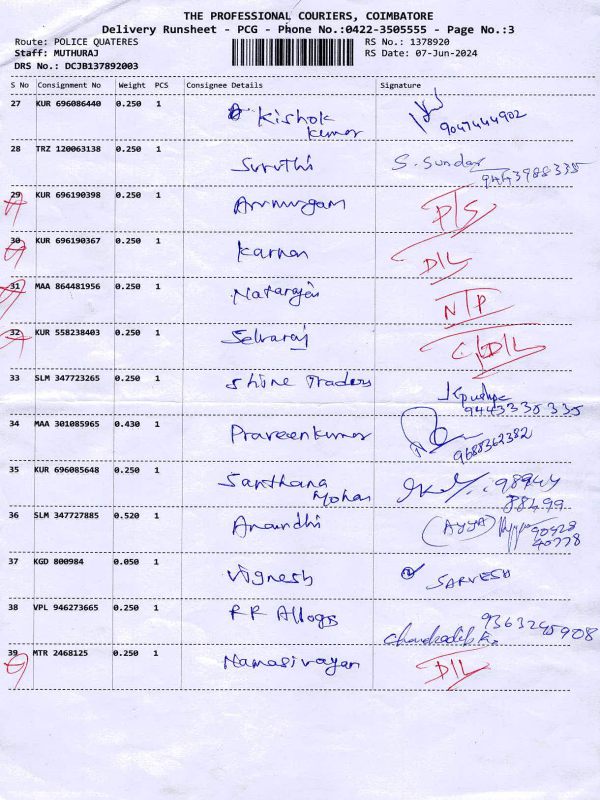 THE PROFESSIONAL COURIERS, COIMBATORE
Delivery Runsheet - PCG - Phone No.:0422-3505555 - Page No.:3
Route: POLICE QUATERES RS No.: 1378920
Staff: MUTHURAJ RS Date: 07-Jun-2024
DRS No.: DCJB137892003
S No Consignment No Weight PCS Consignee Details Signature
27 KUR 696086440 0.250 1 Kishok
Kumar 9047444902
28 TRZ 120063138 0.250 1 Suruthi S. Sundar
9443988335
29 KUR 696190398 0.250 1 Arumurgam D/S
30 KUR 696190367 0.250 1 Karnan D/L
31 MAA 864481956 0.250 1 Natarajan N/P
32 KUR 558238403 0.250 1 Selvaraj C/D/L
33 SLM 347723265 0.250 1 Shine Traders
9443335335
34 MAA 301085965 0.430 1 Praveenkumar 9688362382
35 KUR 696085648 0.250 1 Santhana
Mohan 98944
88499
36 SLM 347727885 0.520 1 Anandhi (AYYA) 90928
40778
37 KGD 800984 0.050 1 Vignesh SARVESH
38 VPL 946273665 0.250 1 RR Alloys 9363245908
39 MTR 2468125 0.250 1 Namasivayan D/L